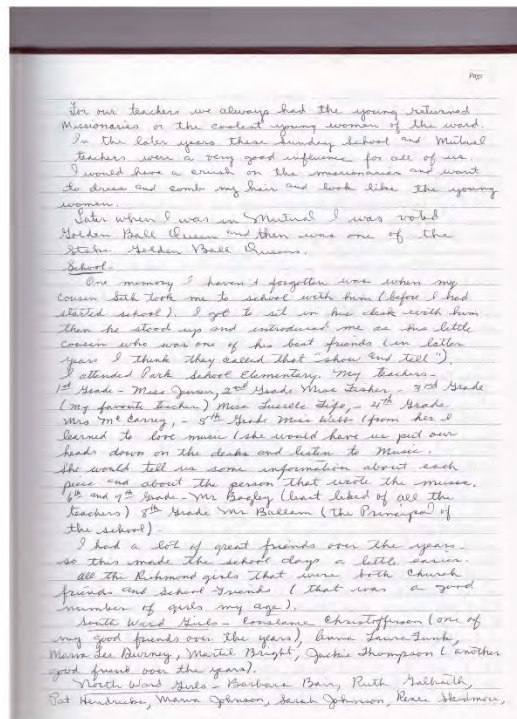 Page
For our teachers we always had the young returned
Missionaries or the coolest young women of the ward.
In the later years these Sunday School and Mutual
teachers were a very good influence for all of us.
I would have a crush on the missionaries and want
to dress and comb my hair and look like the young
women.
Later when I was in Mutual I was voted
Golden Ball Queen and then was one of the
Stake Golden Ball Queens.
School.
One memory I haven't forgotten was when my
cousin Seth took me to school with him (before I had
started school). I got to sit in his desk with him
then he stood up and introduced me as his little
cousin who was one of his best friends (in latter
years I think they called that "show and tell").
I attended Park School Elementary. My teachers-
1st Grade - Miss Jensen, 2nd Grade Miss Fisher - 3rd Grade
(my favorite teacher) Miss Luzelle, - 4th Grade
Mrs Mc Carrey, - 5th Grade Miss Webb (from her I
learned to love music (she would have us put our
heads down on the desks and listen to Music.
She would tell us some information about each
piece and about the person that wrote the music.
6th and 7th Grade - Mr Bagley (least liked of all the
teachers) 8th Grade Mr Ballam (the Principal of
the school).
I had a lot of great friends over the years -
so this made the school days a little easier.
All the Richmond girls that were both Church
friends and School friends (that was a good
number of girls my age).
South Ward Girls - Constance Christofferson (one of
my good friends over the years), Anna Laura Funk,
Marva Lee Burney, Martel Bright, Jackie Thompson (another
good friend over the years).
North Ward Girls - Barbara Barr, Ruth Galbraith,
Pat Hendricks, Marva Johnson, Sarah Johnson, Renee Skidmore,